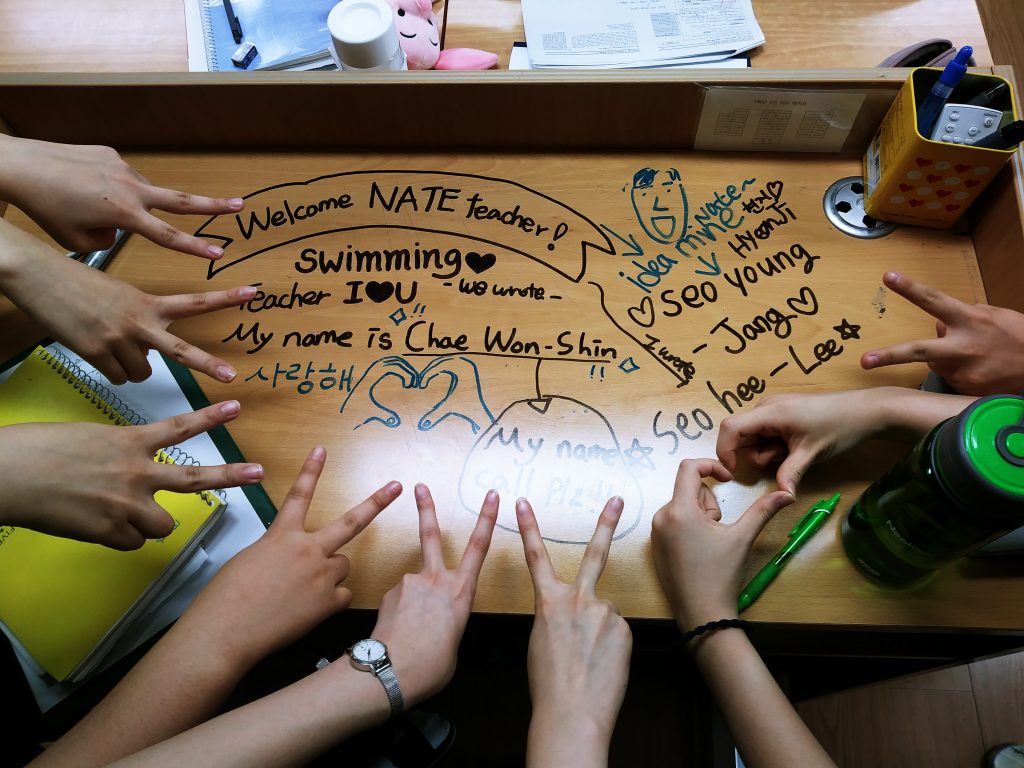 Welcome NATE teacher!
swimming♥
Teacher I♥U
-we wrote-
My name is Chae Won-Shin
!!
!!
사랑해
My name☆
call plz!!
I wrote
Nate~
idea mine
현지♡
HyonJi
♡Seo young
-Jang♡
☆Seo hee-Lee☆